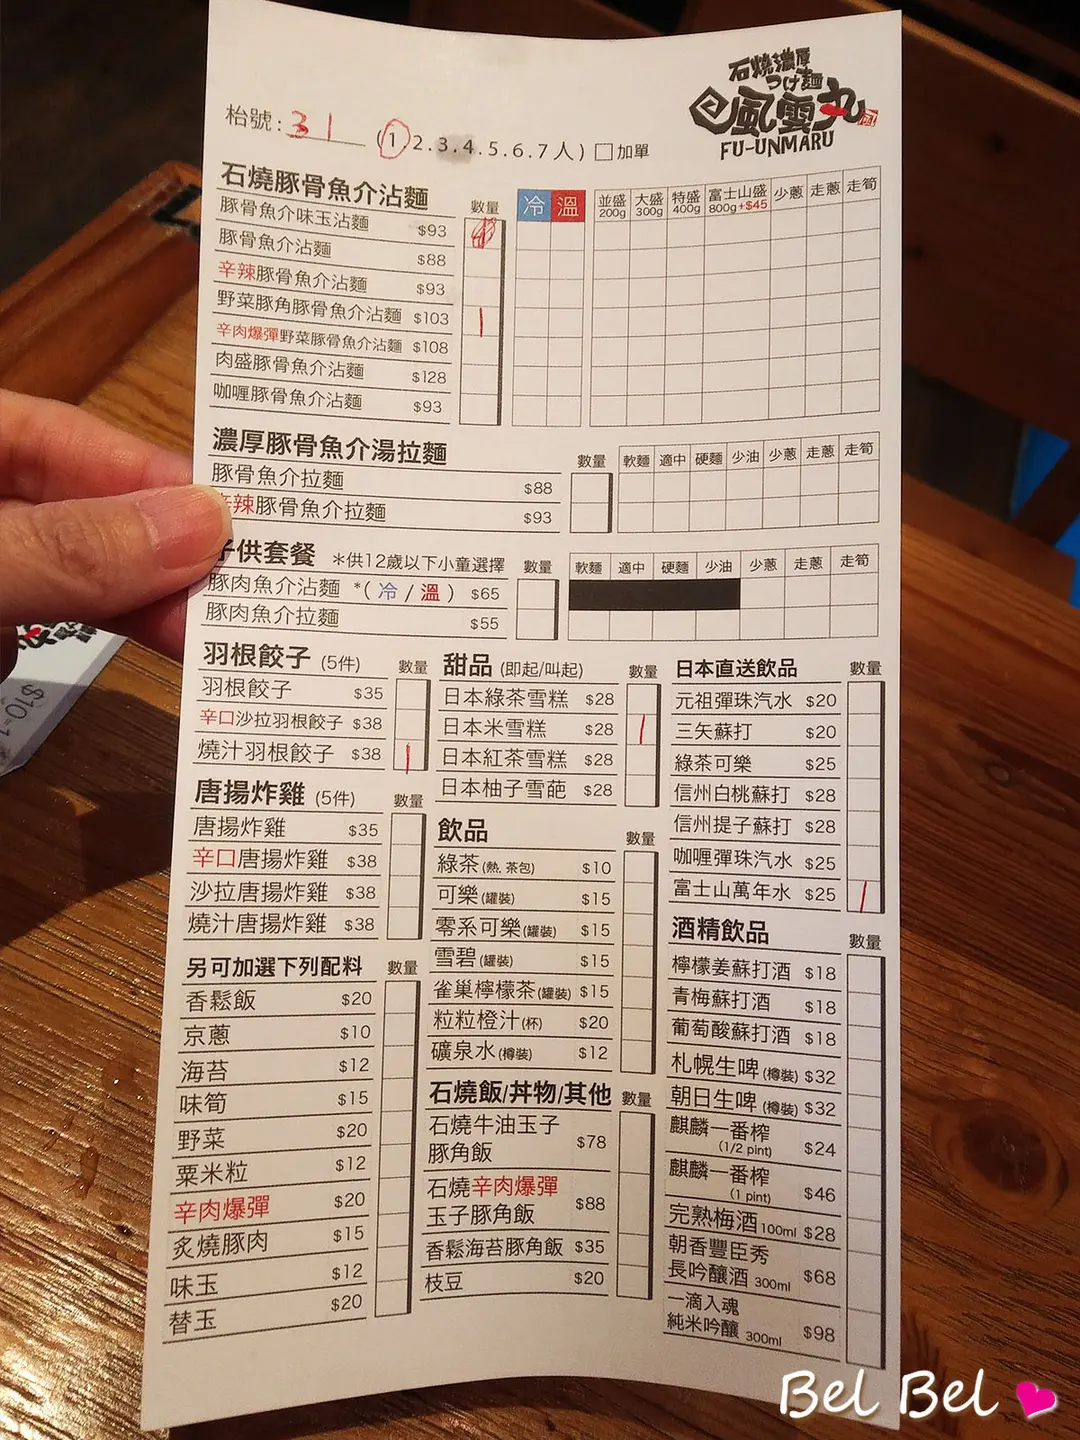 石燒濃厚
つけ麵
風雲丸
FU-UNMARU
枱號: 31 (1.2.3.4.5.6.7人) □加單
石燒豚骨魚介沾麵 數量 冷 溫 並盛 200g 大盛 300g 特盛 400g 富士山盛 800g+$45 少蔥 走蔥 走筍
豚骨魚介味玉沾麵 $93
豚骨魚介沾麵 $88
辛辣豚骨魚介沾麵 $93
野菜豚角豚骨魚介沾麵 $103
辛肉爆彈野菜豚骨魚介沾麵 $108
肉盛豚骨魚介沾麵 $128
咖喱豚骨魚介沾麵 $93
濃厚豚骨魚介湯拉麵 數量 軟麵 適中 硬麵 少油 少蔥 走蔥 走筍
豚骨魚介拉麵 $88
辛辣豚骨魚介拉麵 $93
子供套餐 *供12歲以下小童選擇 數量 軟麵 適中 硬麵 少油 少蔥 走蔥 走筍
豚肉魚介沾麵 *(冷/溫) $65
豚肉魚介拉麵 $55
羽根餃子 (5件) 數量
羽根餃子 $35
辛口沙拉羽根餃子 $38
燒汁羽根餃子 $38
唐揚炸雞 (5件) 數量
唐揚炸雞 $35
辛口唐揚炸雞 $38
沙拉唐揚炸雞 $38
燒汁唐揚炸雞 $38
另可加選下列配料 數量
香鬆飯 $20
京蔥 $10
海苔 $12
味筍 $15
野菜 $20
粟米粒 $12
辛肉爆彈 $20
炙燒豚肉 $15
味玉 $12
替玉 $20
甜品 (即起/叫起) 數量
日本綠茶雪糕 $28
日本米雪糕 $28
日本紅茶雪糕 $28
日本柚子雪葩 $28
飲品 數量
綠茶(熱, 茶包) $10
可樂(罐裝) $15
零系可樂(罐裝) $15
雪碧(罐裝) $15
雀巢檸檬茶(罐裝) $15
粒粒橙汁(杯) $20
礦泉水(樽裝) $12
石燒飯/丼物/其他 數量
石燒牛油玉子
豚角飯 $78
石燒辛肉爆彈
玉子豚角飯 $88
香鬆海苔豚角飯 $35
枝豆 $20
日本直送飲品 數量
元祖彈珠汽水 $20
三矢蘇打 $20
綠茶可樂 $25
信州白桃蘇打 $28
信州提子蘇打 $28
咖喱彈珠汽水 $25
富士山萬年水 $25
酒精飲品 數量
檸檬姜蘇打酒 $18
青梅蘇打酒 $18
葡萄酸蘇打酒 $18
札幌生啤(樽裝) $32
朝日生啤(樽裝) $32
麒麟一番榨
(1/2 pint) $24
麒麟一番榨
(1 pint) $46
完熟梅酒100ml $28
朝香豐臣秀
長吟釀酒 300ml $68
一滴入魂
純米吟釀 300ml $98
$10
Bel Bel